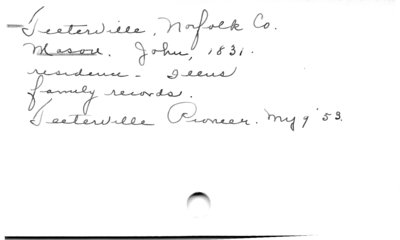 Teeterville, Norfolk Co.
Mason. John, 1831.
residence - Illus
family records.
Teeterville Pioneer. My 9 '53.